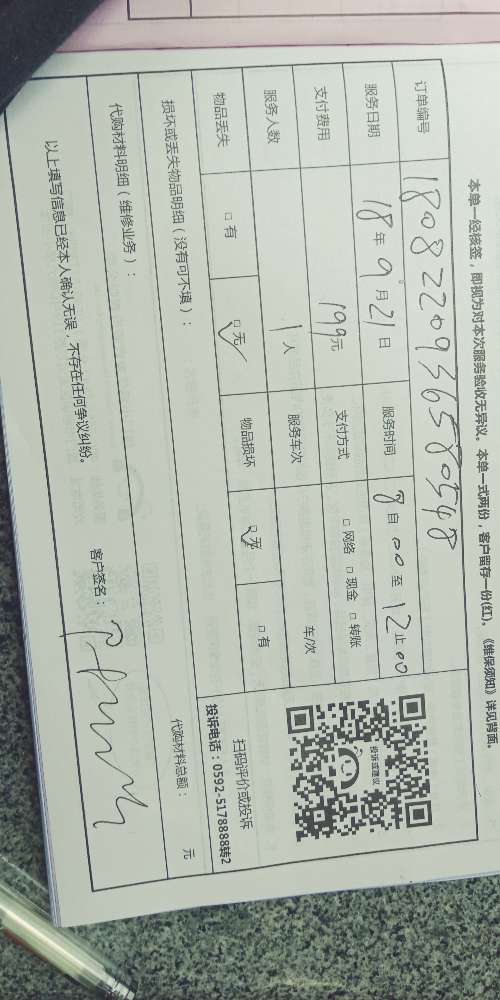 本单一经核签，即视为对本次服务验收无异议。本单一式两份，客户留存一份(红)。《维保须知》详见背面。
订单编号 1808220936589548
服务日期 18年9月21日 服务时间 8自00至12止00
支付费用 199元 支付方式 □网络 □现金 □转账
服务人数 1人 服务车次 车/次
物品丢失 □有 □无 物品损坏 □无 □有
投诉或建议
扫码评价或投诉
投诉电话：0592-5178888转2
损坏或丢失物品明细（没有可不填）：
代购材料明细（维修业务）： 代购材料总额： 元
以上填写信息已经本人确认无误，不存在任何争议纠纷。 客户签名：